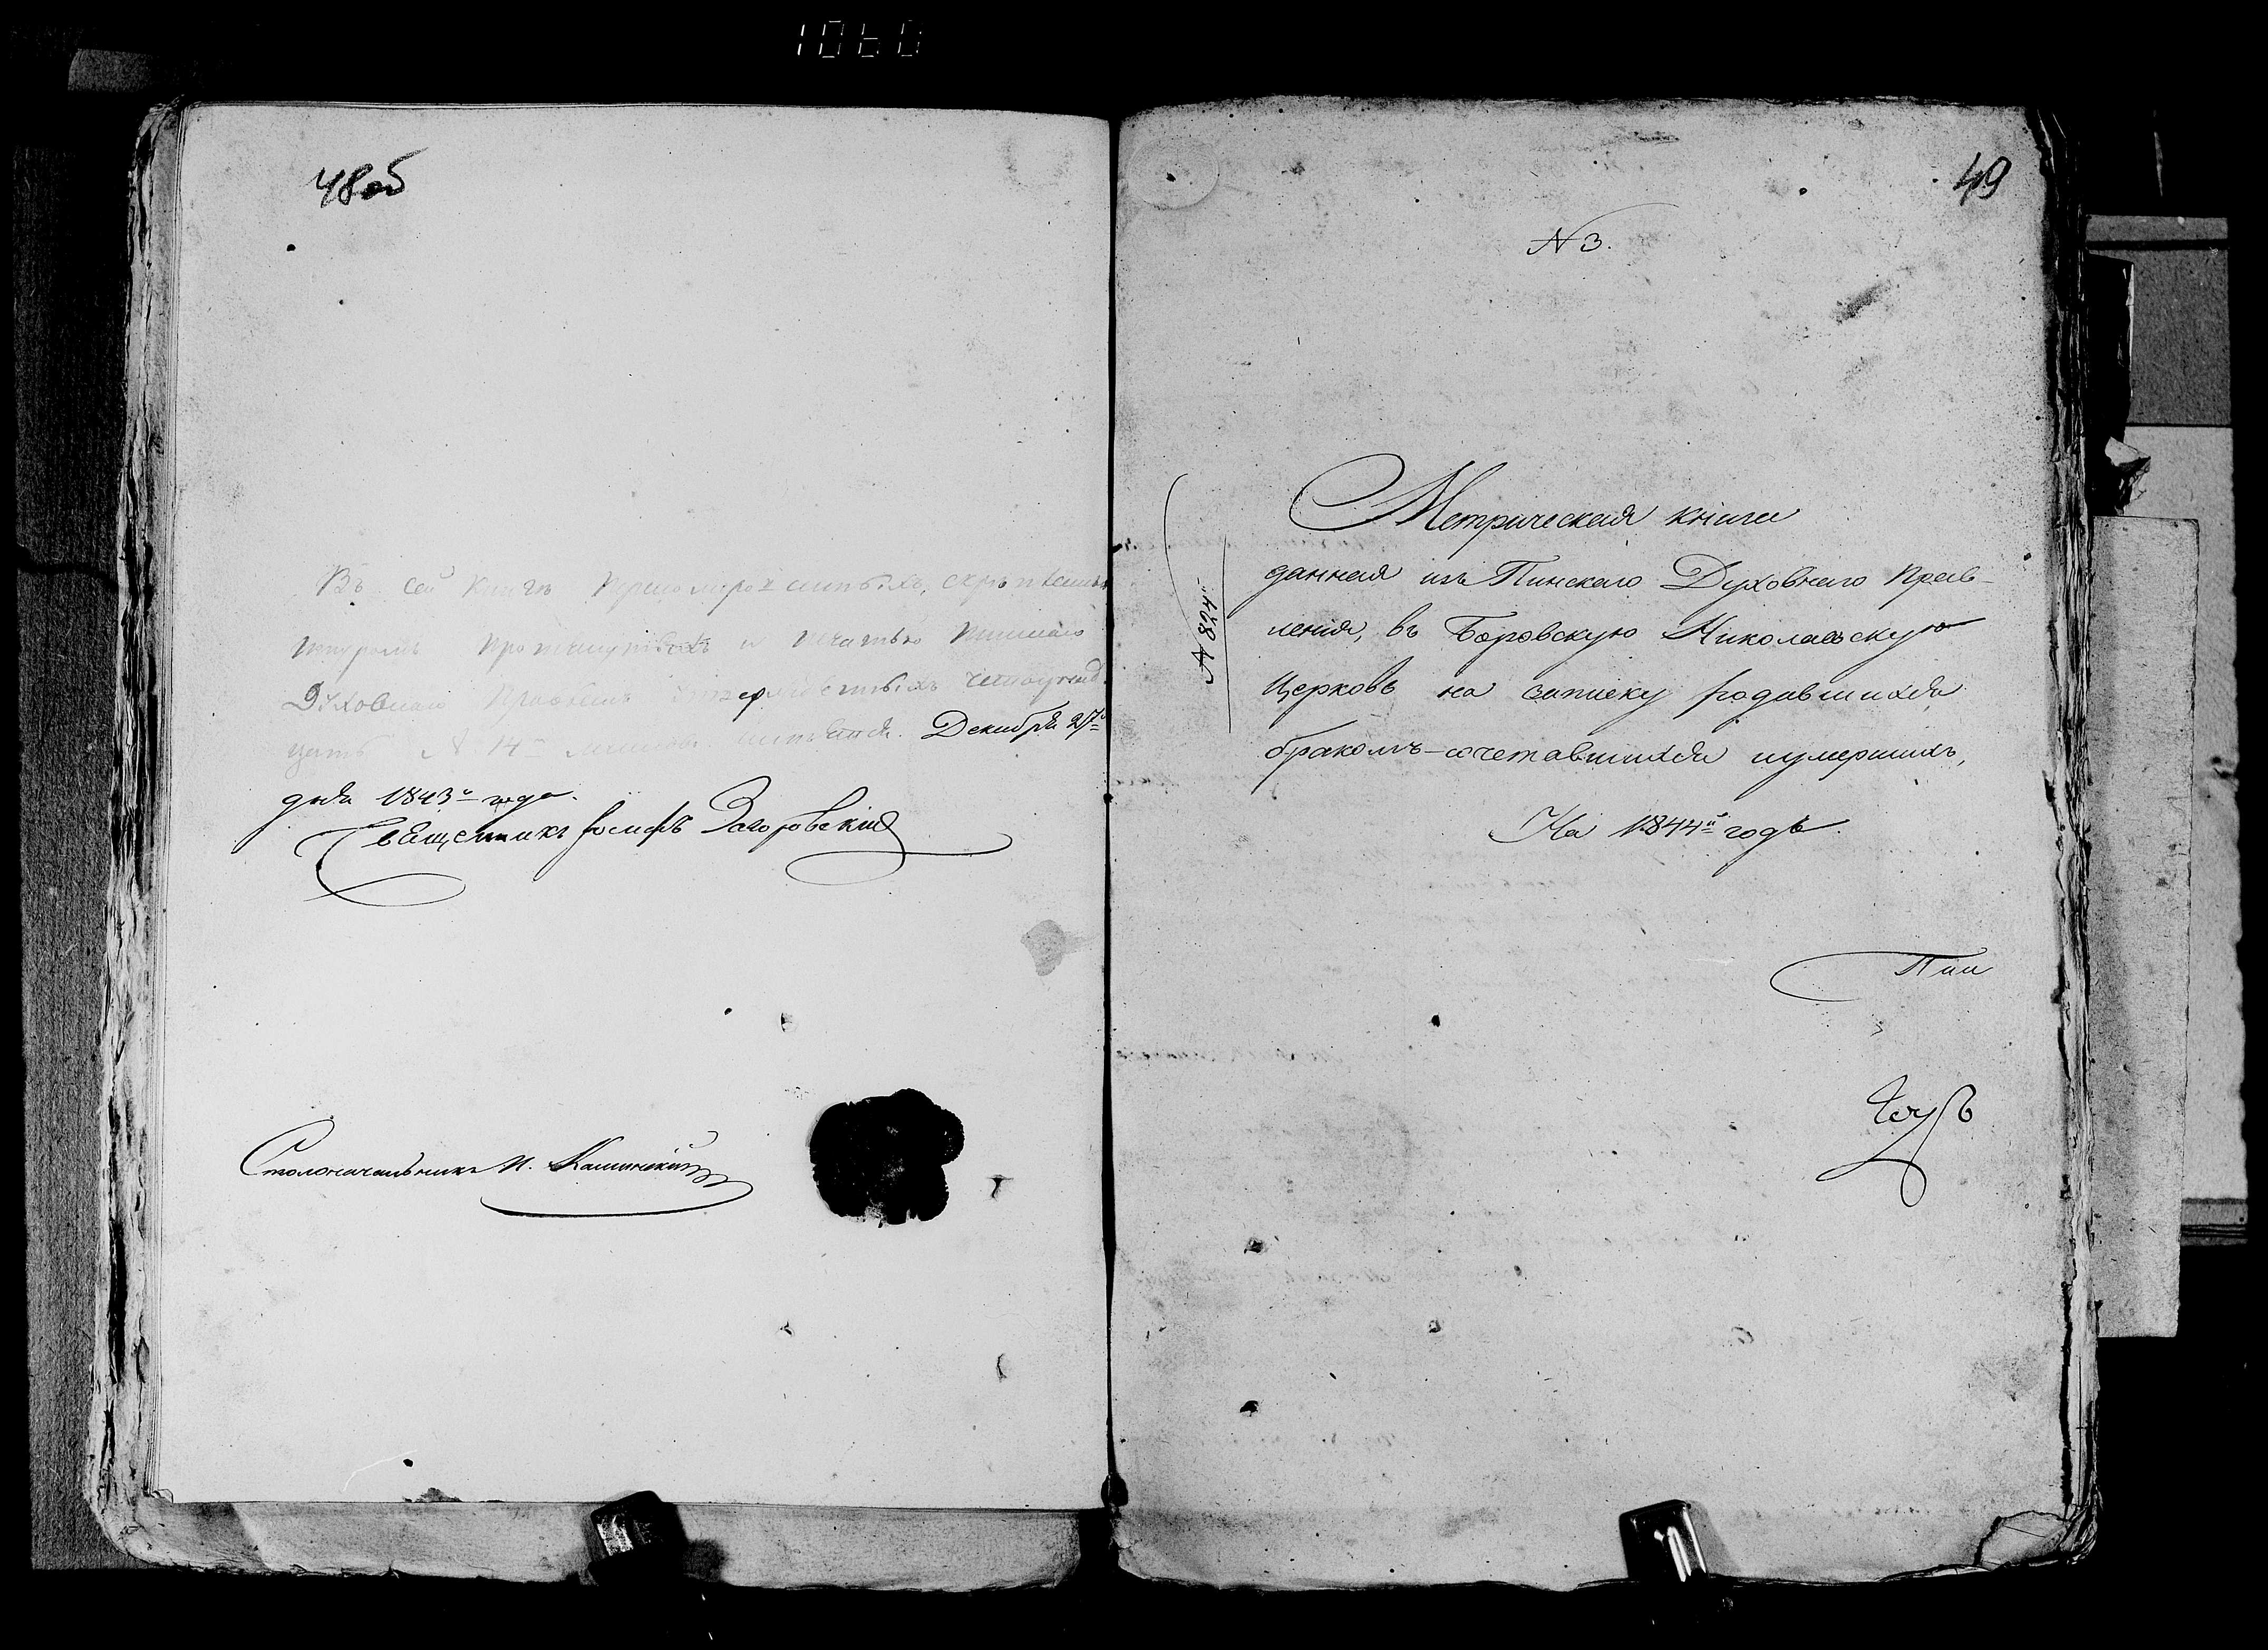 1060
48об
Въ сей книгѣ
шнуромъ и печатью Пинскаго
Духовнаго четырнад-
цать № 14 Декабря 27
дня 1843го года.
Священникъ Іосифъ Загоровскій
Столоначальникъ И.
49
№ 3.
№ 824
Метрическая книга
данная изъ Пинскаго Духовнаго Прав-
ленія, въ Боровскую Николаевскую
Церковь на записку родившихся
бракомъ-сочетавшихся и умершихъ,
На 1844й годъ.
Пин